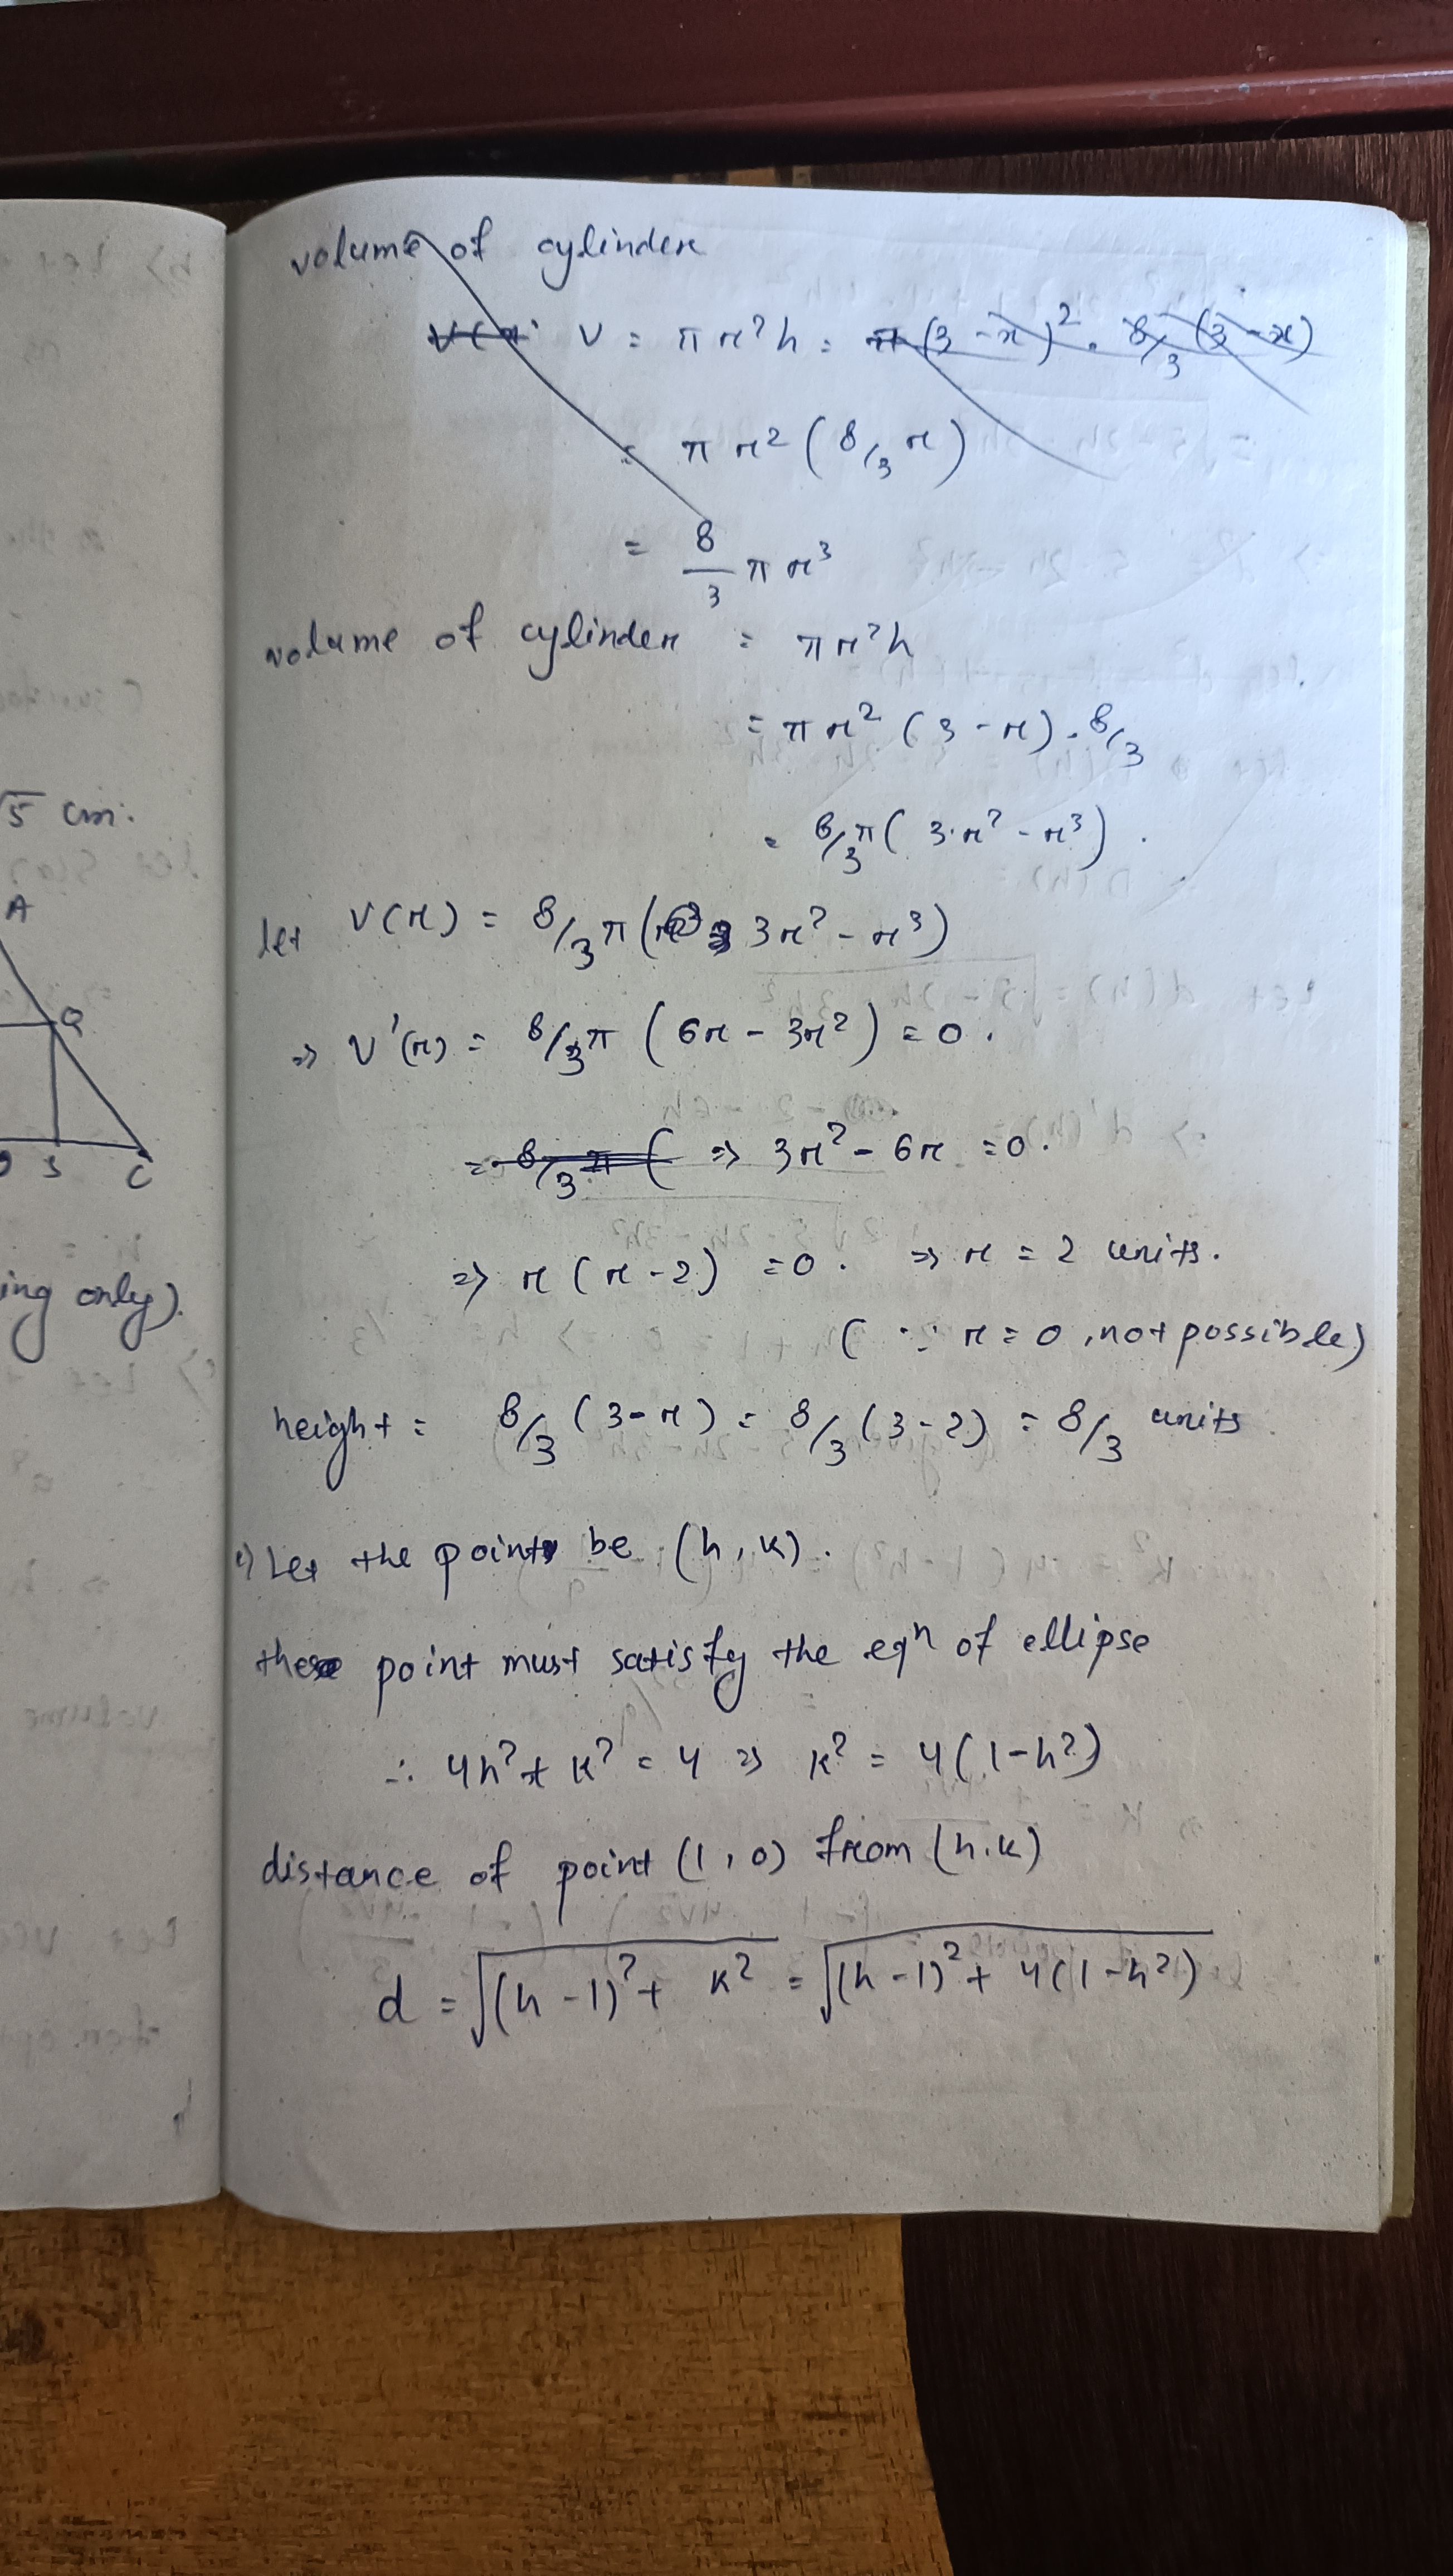 volume of cylinder
V = πr²h = π(3-x)². 8/3 (3-x)
= πr² (8/3 r)
= 8/3 πr³
volume of cylinder = πr²h
= πr² (3-r). 8/3
= 8/3 π( 3.r² - r³).
let V(r) = 8/3 π( 3r² - r³)
⇒ V'(r) = 8/3 π (6r - 3r²) = 0.
= 8/3 π ( ⇒ 3r² - 6r = 0.
⇒ r(r-2) = 0. ⇒ r = 2 units.
(∵ r = 0, not possible)
height = 8/3 (3-r) = 8/3 (3-2) = 8/3 units
c) Let the point be (h, k).
these point must satisfy the eqⁿ of ellipse
∴ 4h² + k² = 4 ⇒ k² = 4(1-h²)
distance of point (1, 0) from (h.k)
d = √((h-1)² + k²) = √((h-1)² + 4(1-h²))
√5 cm.
A
Q
S C
ing only).